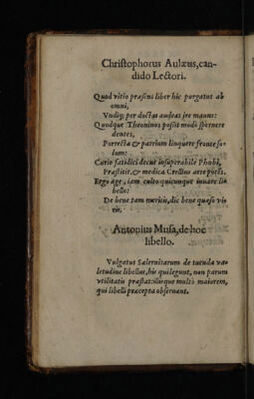 Christophorus Aulæus, can-
dido Lectori.
Quod vitio prastins liber hic purgatut ab
omni,
Vndiq; per doctas audeat ire manus:
Quodque Theoninos possit modò spernere
dentes,
Porrecta & patrium linquere fronte so-
lum:
Curio fatidici decus insuperabile Phœbi,
Præstitit, & medica Crellius arte potēs.
Ergo age, iam culto quicunque iuuare li-
bello:
De bene tam meritis, dic bene quæso vi-
ris.
Antonius Musa, de hoc
libello.
Vulgatus Salernitarum de tuenda va-
letudine libellus, his qui legunt, non parum
vtilitatis præstat: illisque multò maiorem,
qui libelli præcepta obseruant.